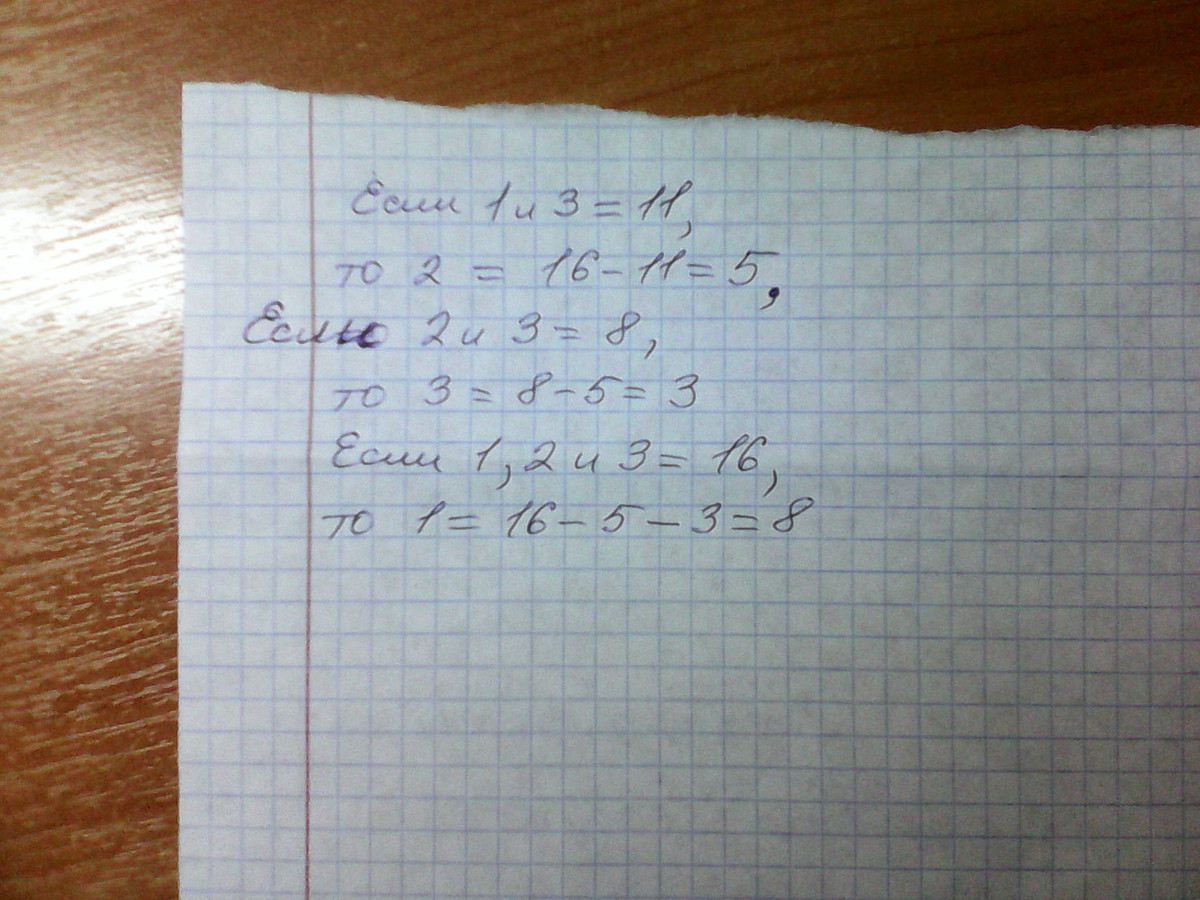 Если 1 и 3 = 11,
то 2 = 16 - 11 = 5,
Если 2 и 3 = 8,
то 3 = 8 - 5 = 3
Если 1, 2 и 3 = 16,
то 1 = 16 - 5 - 3 = 8